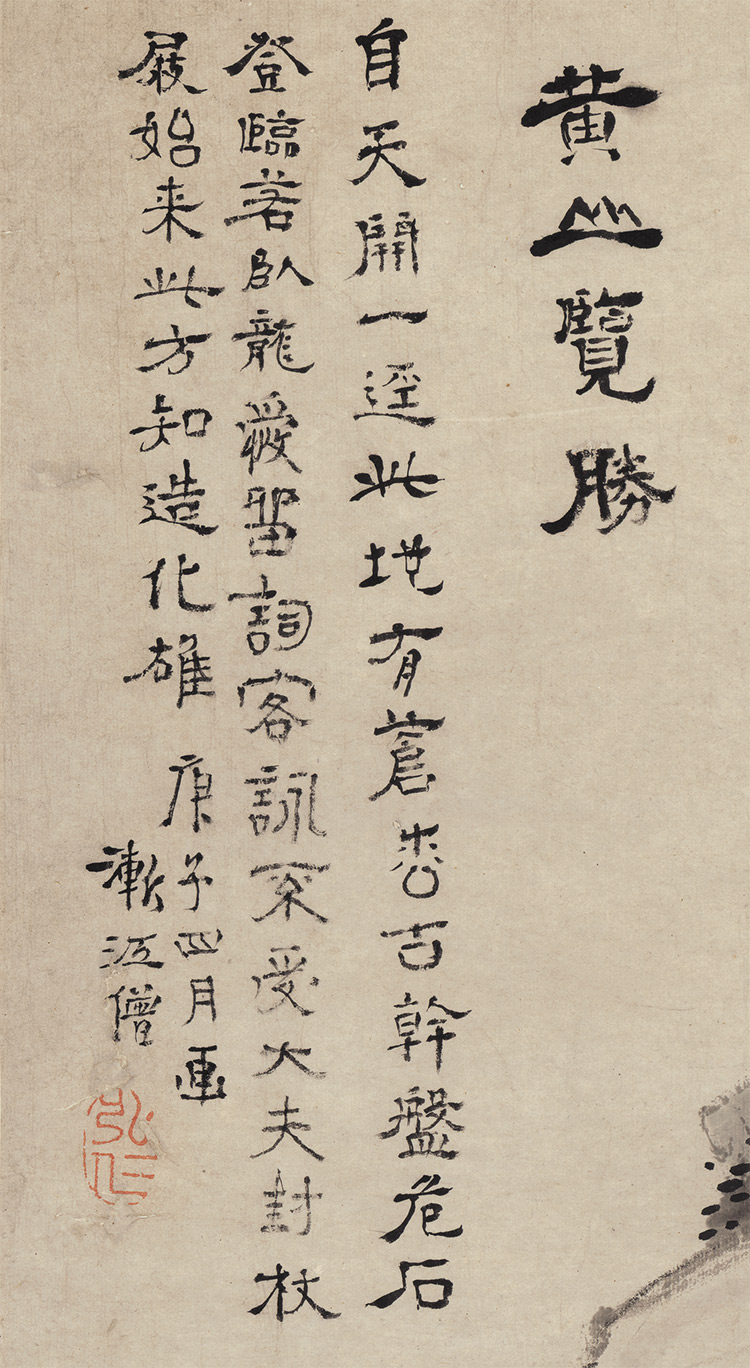 黄山覽勝
自天開一逕此地有蒼枩古幹盤危石
登臨若臥龍愛留詞客詠不受大夫封杖
屐始来此方知造化雄
庚子四月画
漸江僧
弘仁